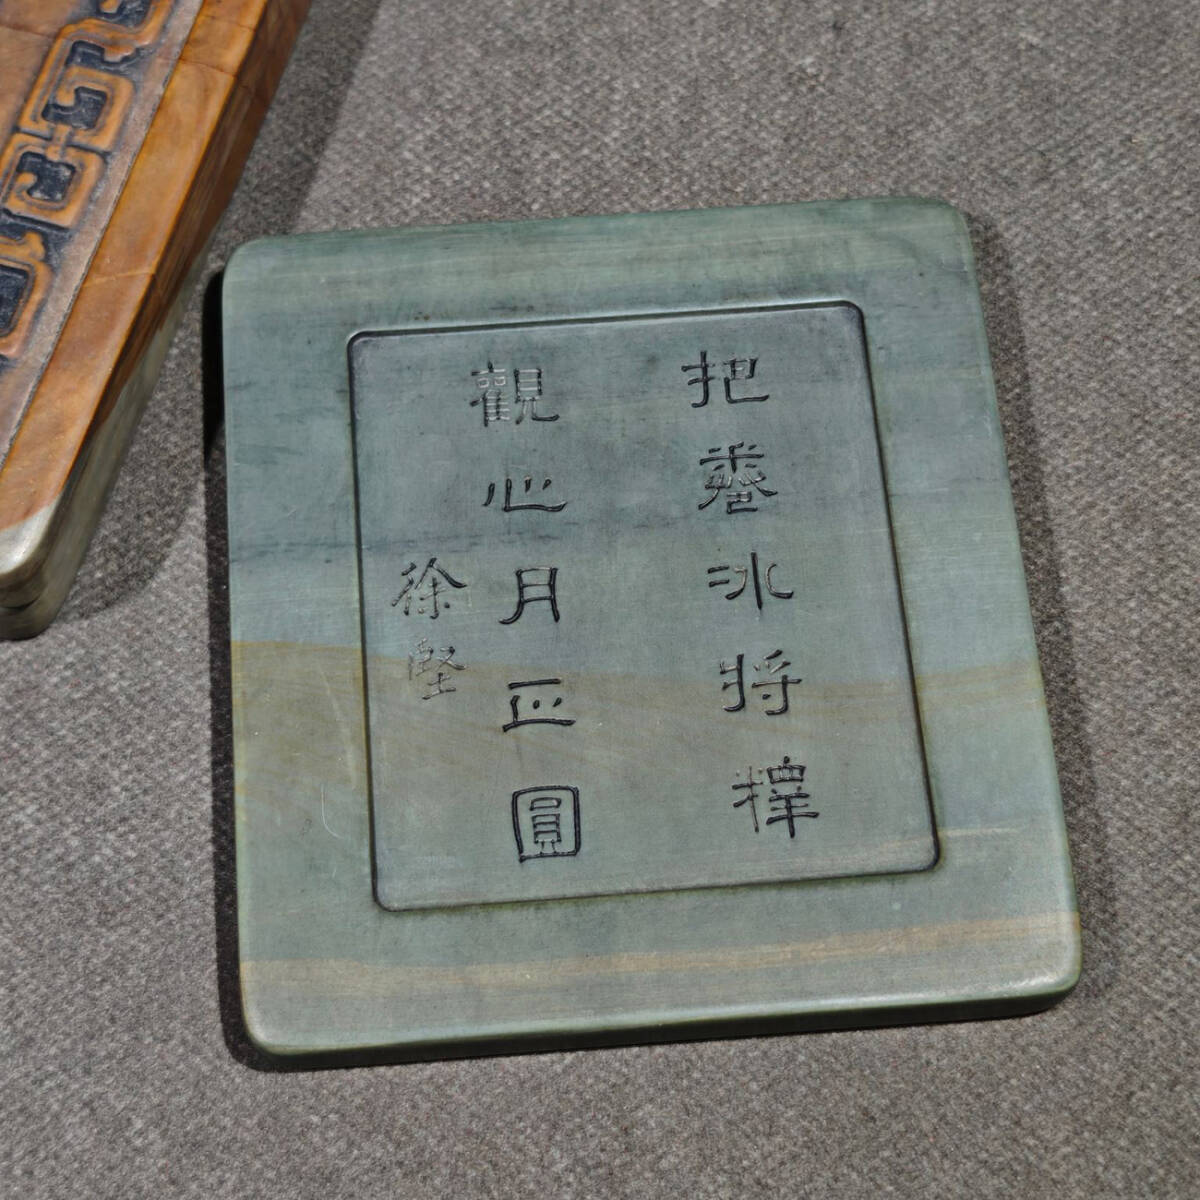 把卷冰將釋
觀心月正圓
徐堅